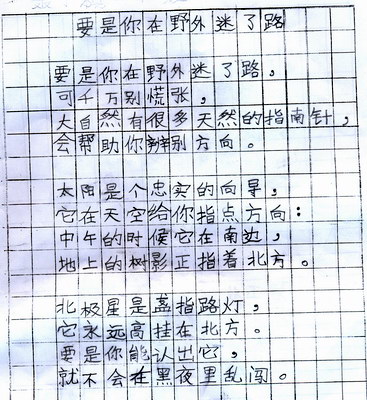 要是你在野外迷了路
要是你在野外迷了路，
可千万别慌张，
大自然有很多天然的指南针，
会帮助你辨别方向。
太阳是个忠实的向导，
它在天空给你指点方向：
中午的时候它在南边，
地上的树影正指着北方。
北极星是盏指路灯，
它永远高挂在北方。
要是你能认出它，
就不会在黑夜里乱闯。